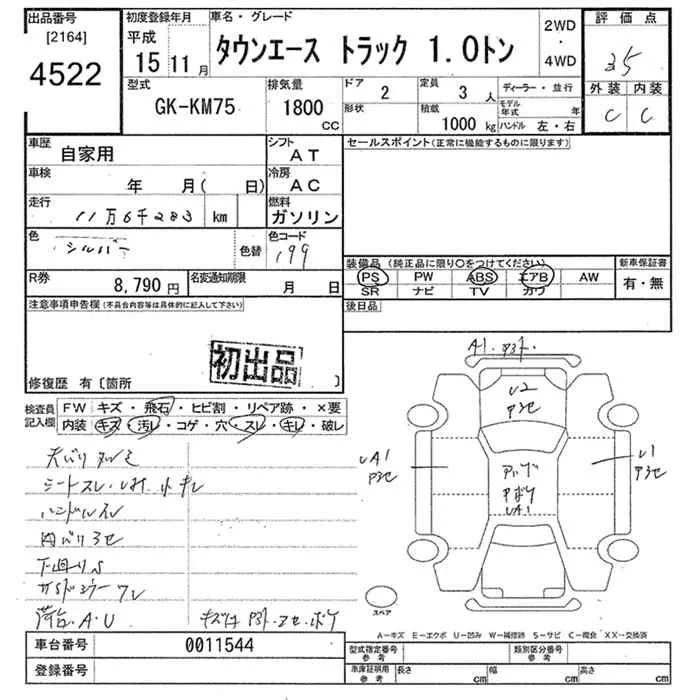 出品番号
[2164]
4522
初度登録年月
平成
15 11月
車名・グレード
タウンエース トラック 1.0トン
2WD
・
4WD
評価点
35
外装 内装
C C
型式
GK-KM75
排気量
1800
CC
ドア
2
形状
定員
3人
積載
1000kg
ディーラー・並行
モデル年式 年
ハンドル 左・右
車歴
自家用
シフト
AT
車検
年 月( 日)
冷房
AC
走行
11万6千283 km
燃料
ガソリン
色
シルバー
色替
色コード
199
R券
8,790円
名変通知期限
月 日
セールスポイント(正常に機能するものに限ります)
装備品(純正品に限り○をつけてください)
PS PW ABS エアB AW
SR ナビ TV カワ
新車保証書
有・無
後日品
注意事項申告欄(不具合内容等は具体的に記入して下さい)
初出品
修復歴 有〔箇所 〕
検査員記入欄
FW キズ・飛石・ヒビ割・リペア跡・×要
内装 キズ・汚レ・コゲ・穴・スレ・キレ・破レ
天バリ
シートスレ
ハンドルスレ
内バリ
下回りS
荷台A・U
A1
U2
UA1
U1
UA1
スペア
A−キズ E−エクボ U−凹み W−補修跡 S−サビ C−腐食 XX−交換済
車台番号
0011544
登録番号
型式指定番号
参考
類別区分番号
参考
車庫証明用
参考
長さ cm
幅 cm
高さ cm